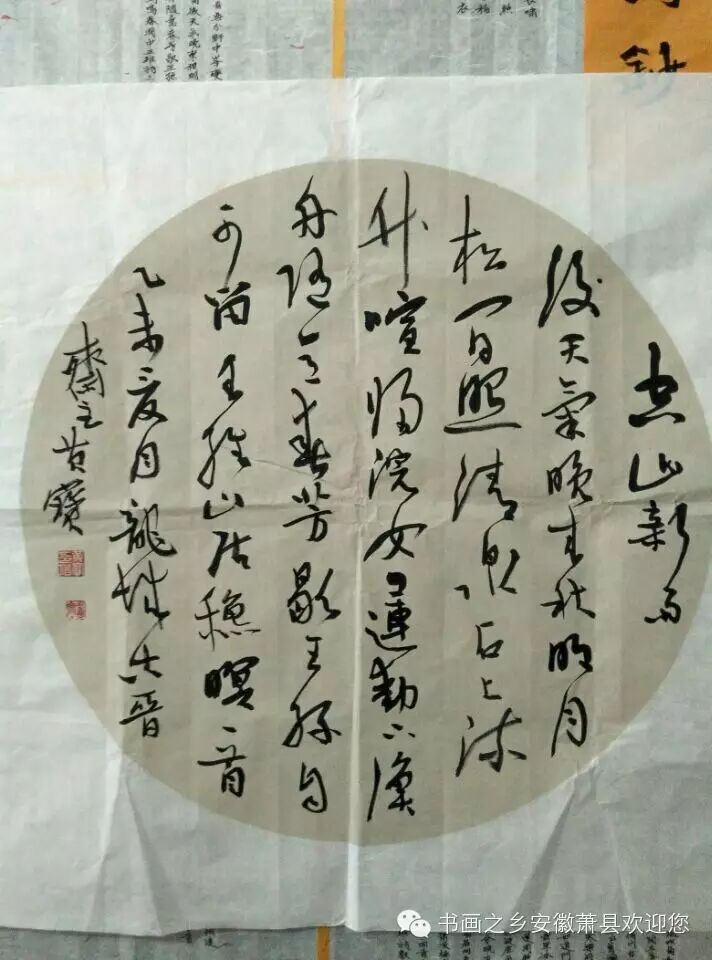 空山新雨
後天氣晚来秋明月
松间照清泉石上流
竹喧归浣女莲動下漁
舟随意春芳歇王孫自
可留王維山居穐暝一首
乙未夏月龍城晋
齋主黄寳
鈔
书画之乡安徽萧县欢迎您